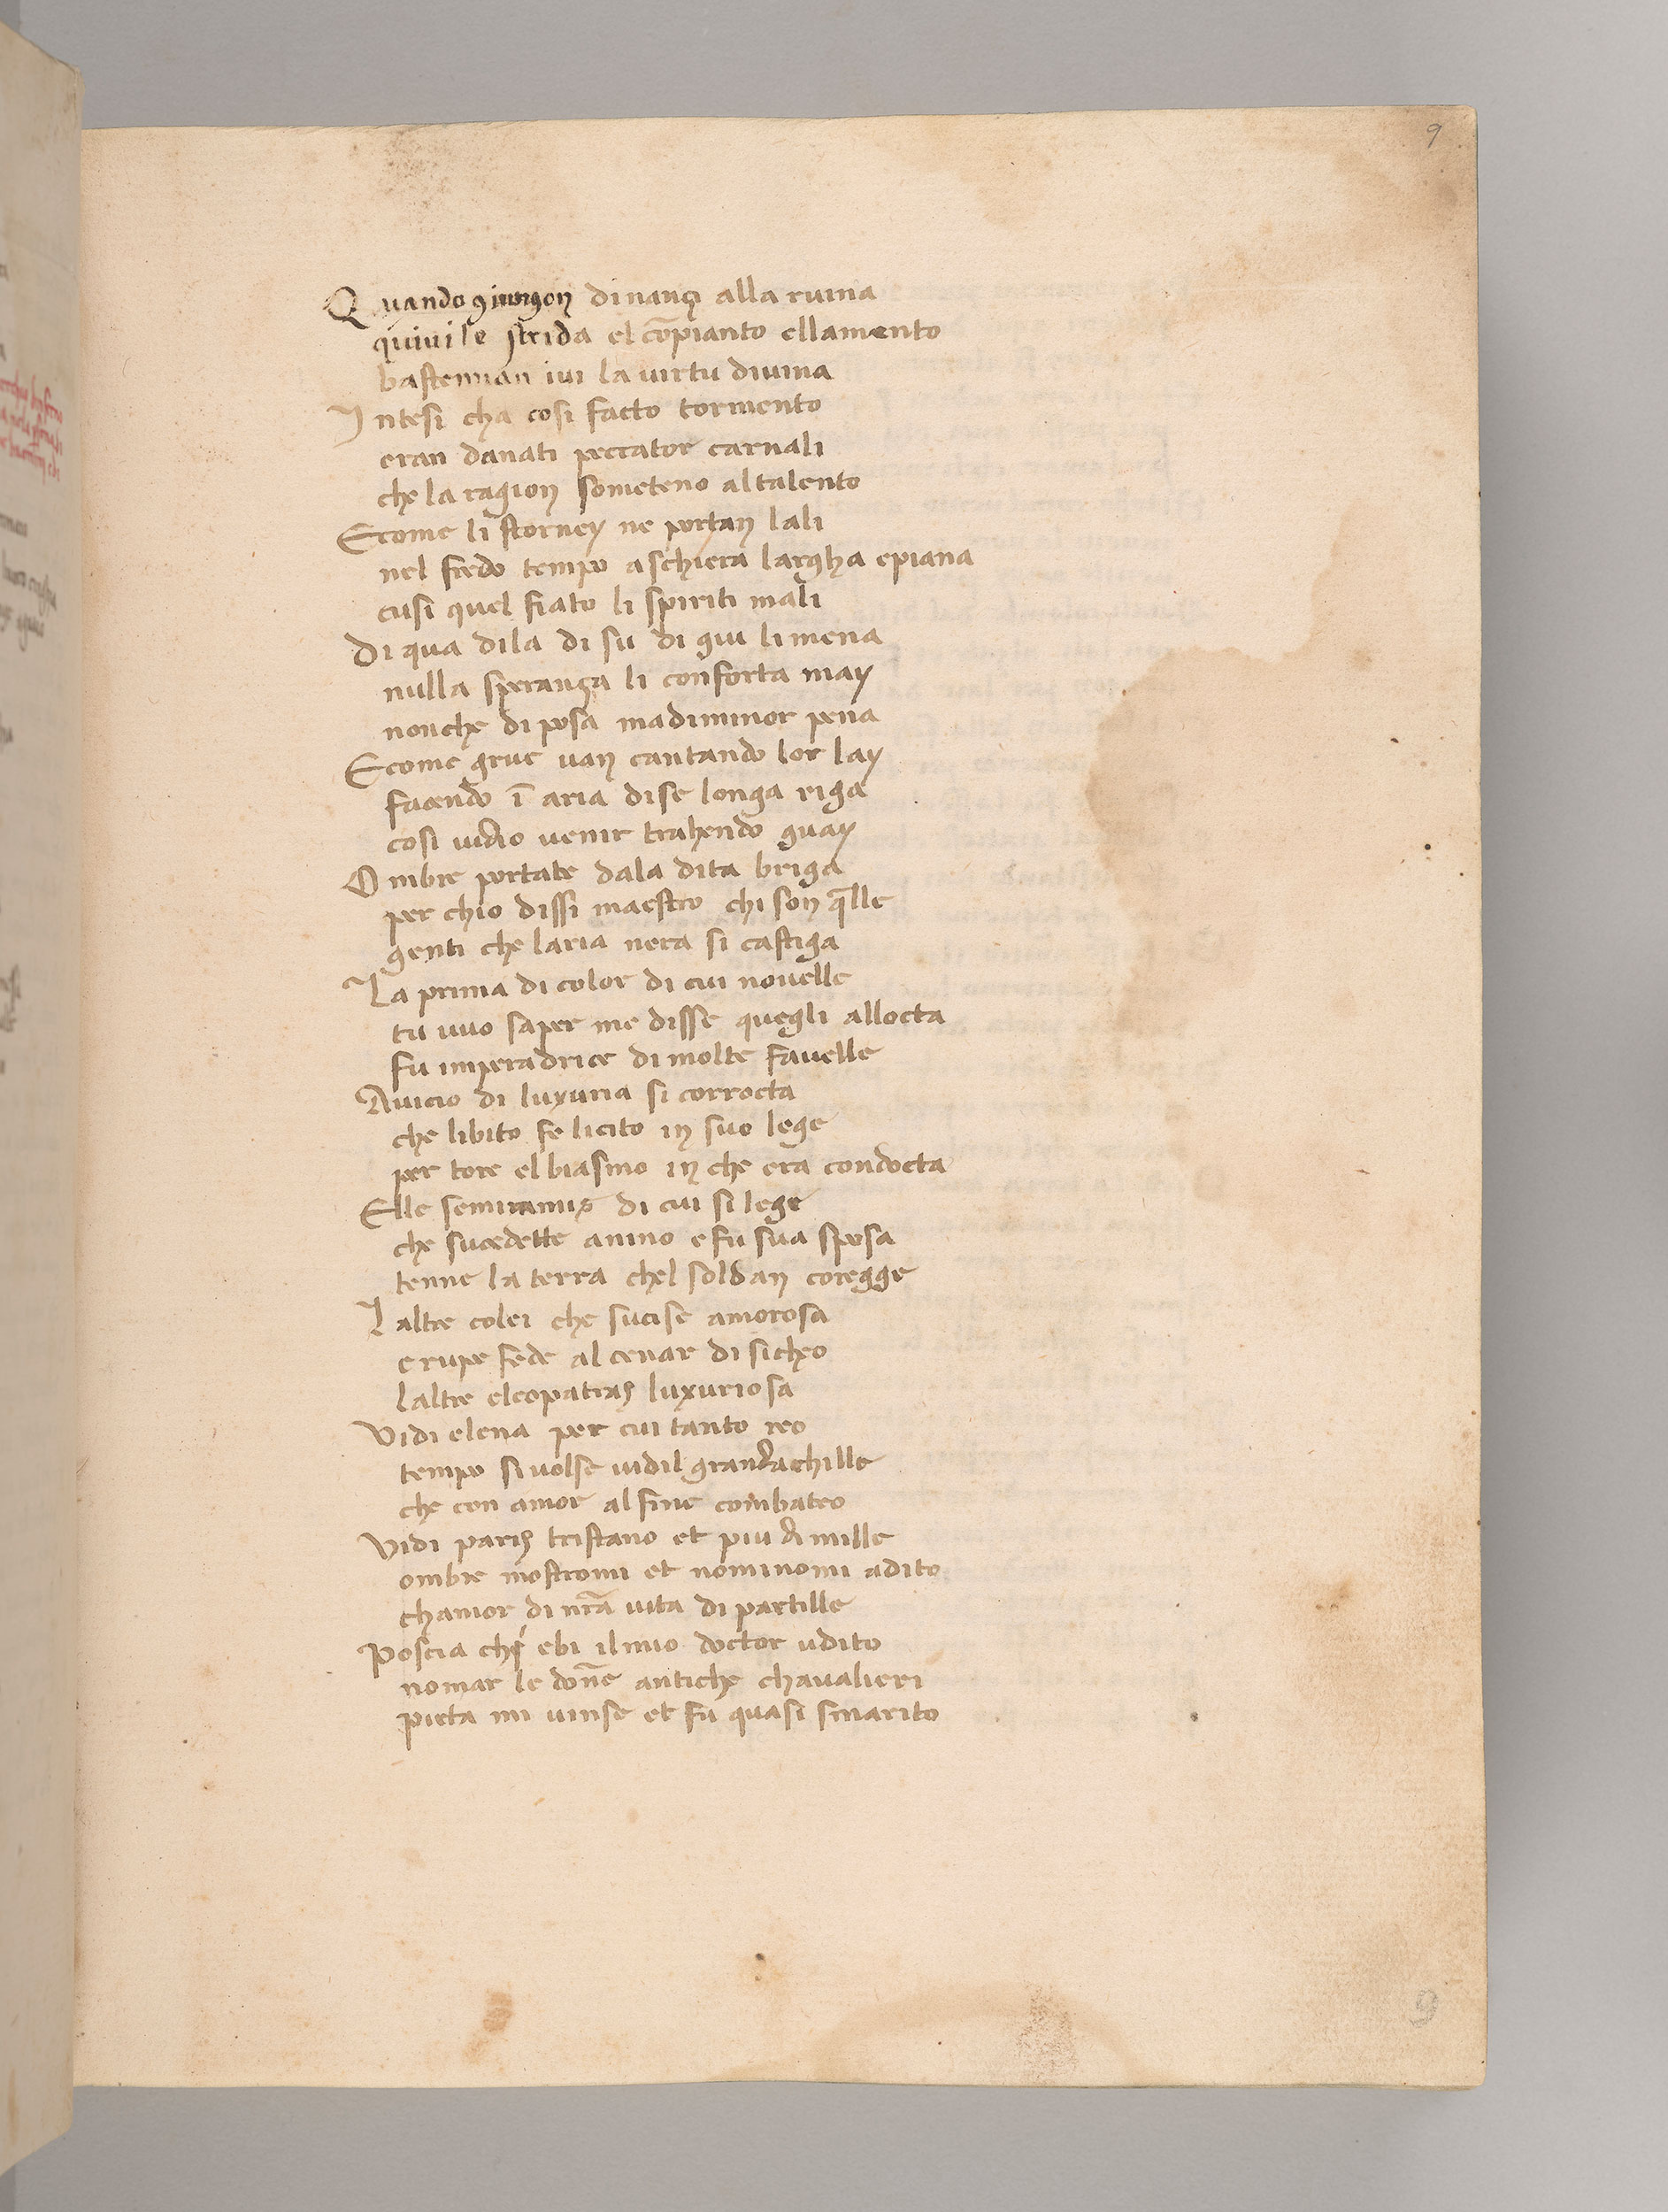 9
Quando giungon dinançi alla ruina
quiui le strida el cōpianto ellamento
bastemian iui la uirtu diuina
Intesi cha cosi facto tormento
eran danati peccator carnali
che la ragion someteno al talento
Ecome li storney ne portan lali
nel fredo tempo a schiera largha epiana
cusi quel fiato li spiriti mali
Di qua dila di su di giu li mena
nulla sperança li conforta may
nonche di posa madiminor pena
Ecome grue uan cantando lor lay
facendo ī aria dise longa riga
cosi uidio uenir trahendo guay
Ombre portate dala dita briga
per chio dissi maestro chi son q̄lle
genti che laria nera si castiga
La prima di color di cui nouelle
tu uuo saper me disse quegli allocta
fu imperadrice di molte fauelle
Auicio di luxuria si corrocta
che libito fe licito in suo lege
per tore el biasmo in che era condocta
Elle semiramis di cui si lege
che sucedette anino efu sua sposa
tenne la terra chel soldan coregge
Laltre colei che sucise amorosa
e rupe fede al cenar di sicheo
laltre cleopatras luxuriosa
Vidi elena per cui tanto reo
tempo siuolse uidil grandachille
che con amor al fine combateo
Vidi paris tristano et piu di mille
ombre mostromi et nominomi adito
chamor di nr̄a uita di partille
Poscia chi ebi il mio doctor udito
nomar le dōne antiche chaualieri
pieta mi uinse et fu quasi smarito
9